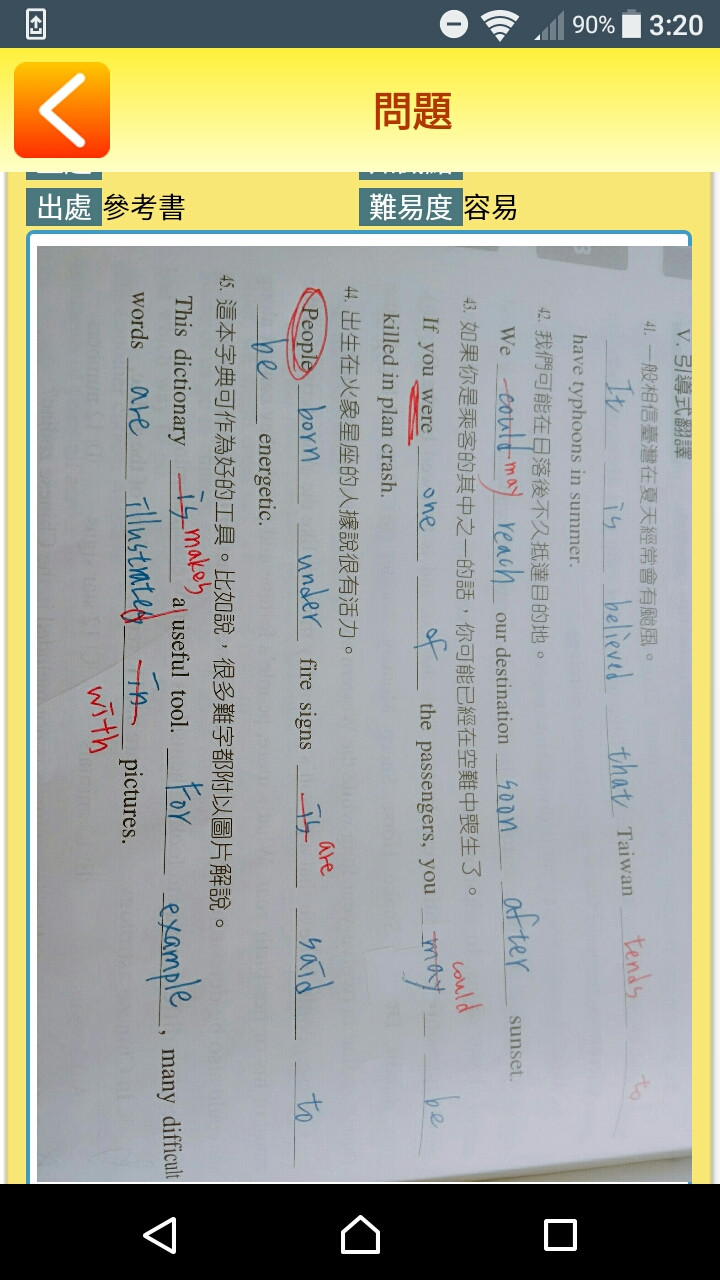 90% 3:20
問題
出處 參考書 難易度 容易
V. 引導式翻譯
41. 一般相信臺灣在夏天經常會有颱風。
It is believed that Taiwan tends to
have typhoons in summer.
42. 我們可能在日落後不久抵達目的地。
We could may reach our destination soon after sunset.
43. 如果你是乘客的其中之一的話，你可能已經在空難中喪生了。
If you were one of the passengers, you may could be
killed in plan crash.
44. 出生在火象星座的人據說很有活力。
People born under fire signs is are said to
be energetic.
45. 這本字典可作為好的工具。比如說，很多難字都附以圖片解說。
This dictionary is makes a useful tool. For example, many difficult
words are illustrated in with pictures.